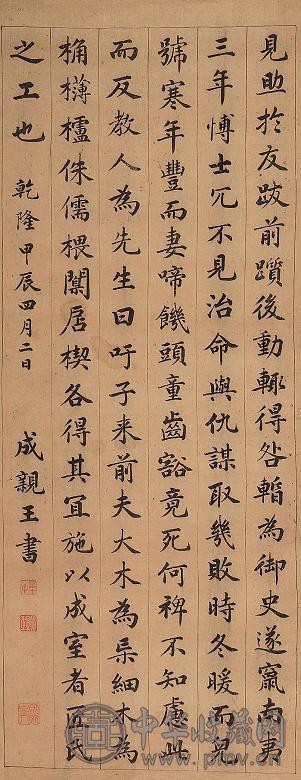 見助於友跋前躓後動輒得咎暫為御史遂竄南夷
三年博士冗不見治命與仇謀取幾敗時冬暖而兒
號寒年豐而妻啼饑頭童齒豁竟死何裨不知慮此
而反教人為先生曰吁子来前夫大木為杗細木為
桷欂櫨侏儒椳闑扂楔各得其冝施以成室者匠氏
之工也 乾隆甲辰四月二日 成親王書
中華收藏網